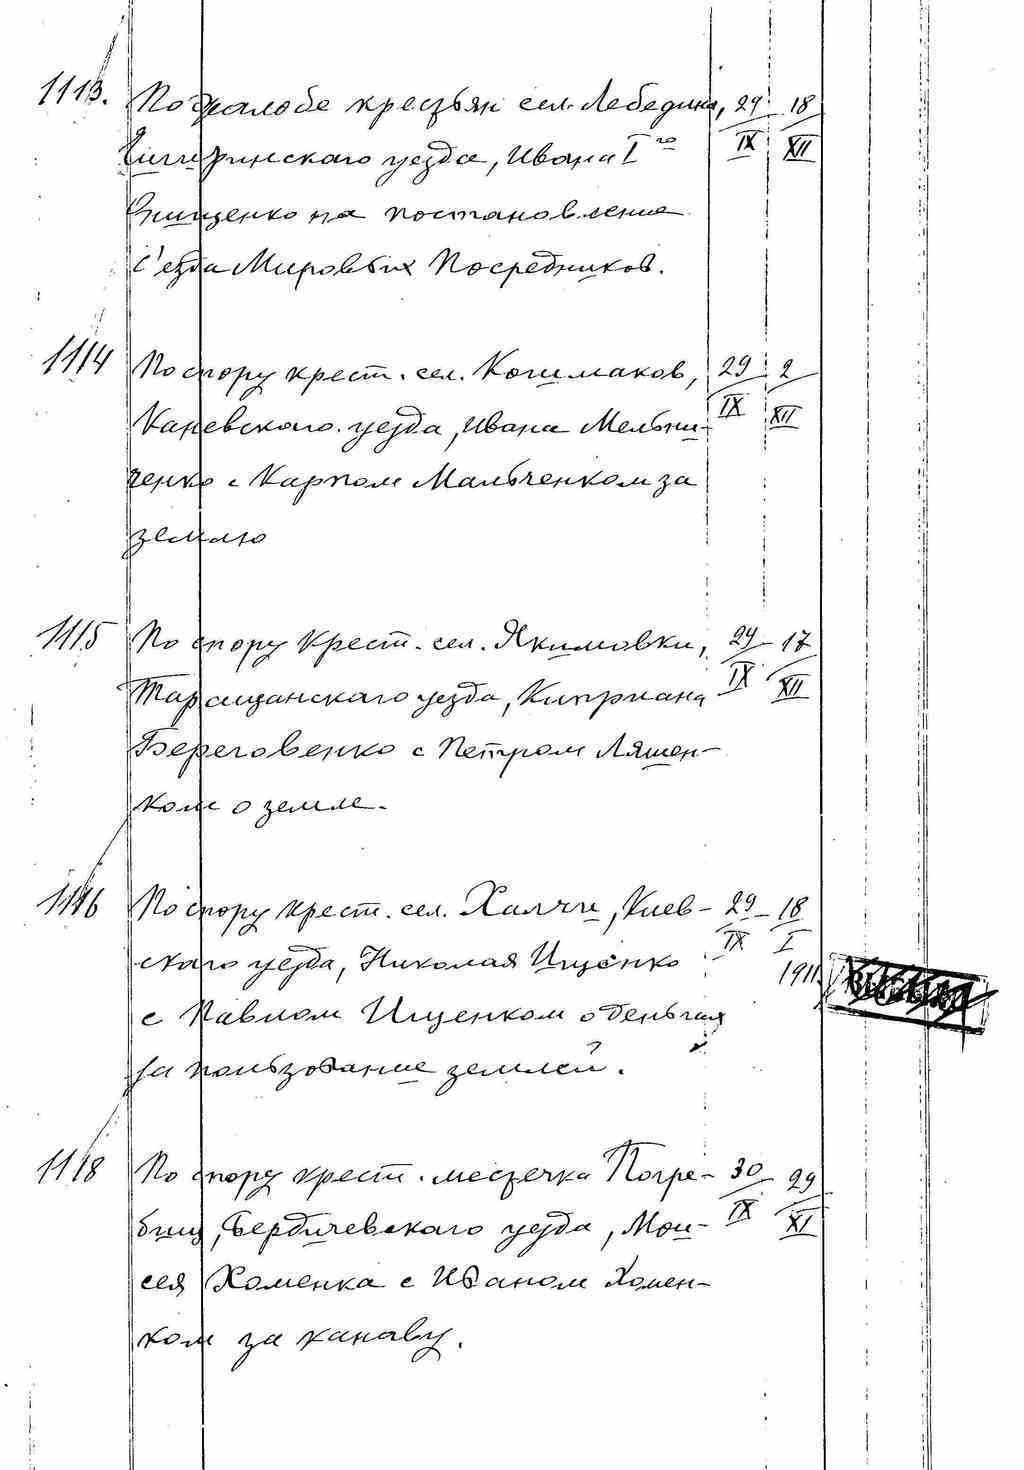 1113. По жалобе крестьян сел. Лебедина, 29 18
Чигиринского уезда, Ивана I го IX XII
Онищенко на постановление
с'езда Мировых Посредников.
1114 По спору крест. сел. Кошмаков, 29 2
Каневского уезда, Ивана Мельни- IX XII
ченко с Карпом Мальченком за
землю
1115 По спору крест. сел. Якимовки, 29 17
Таращанского уезда, Киприана IX XII
Береговенко с Петром Ляшен-
ком о земле.
1116 По спору крест. сел. Халчи, Киев- 29 18
ского уезда, Николая Ищенко IX I
1911.
с Павлом Ищенком о деньгах
за пользование землей.
1118 По спору крест. местечка Погре- 30 29
бищ, Бердичевского уезда, Мои- IX XI
сея Хоменка с Иваном Хомен-
ком за канаву.